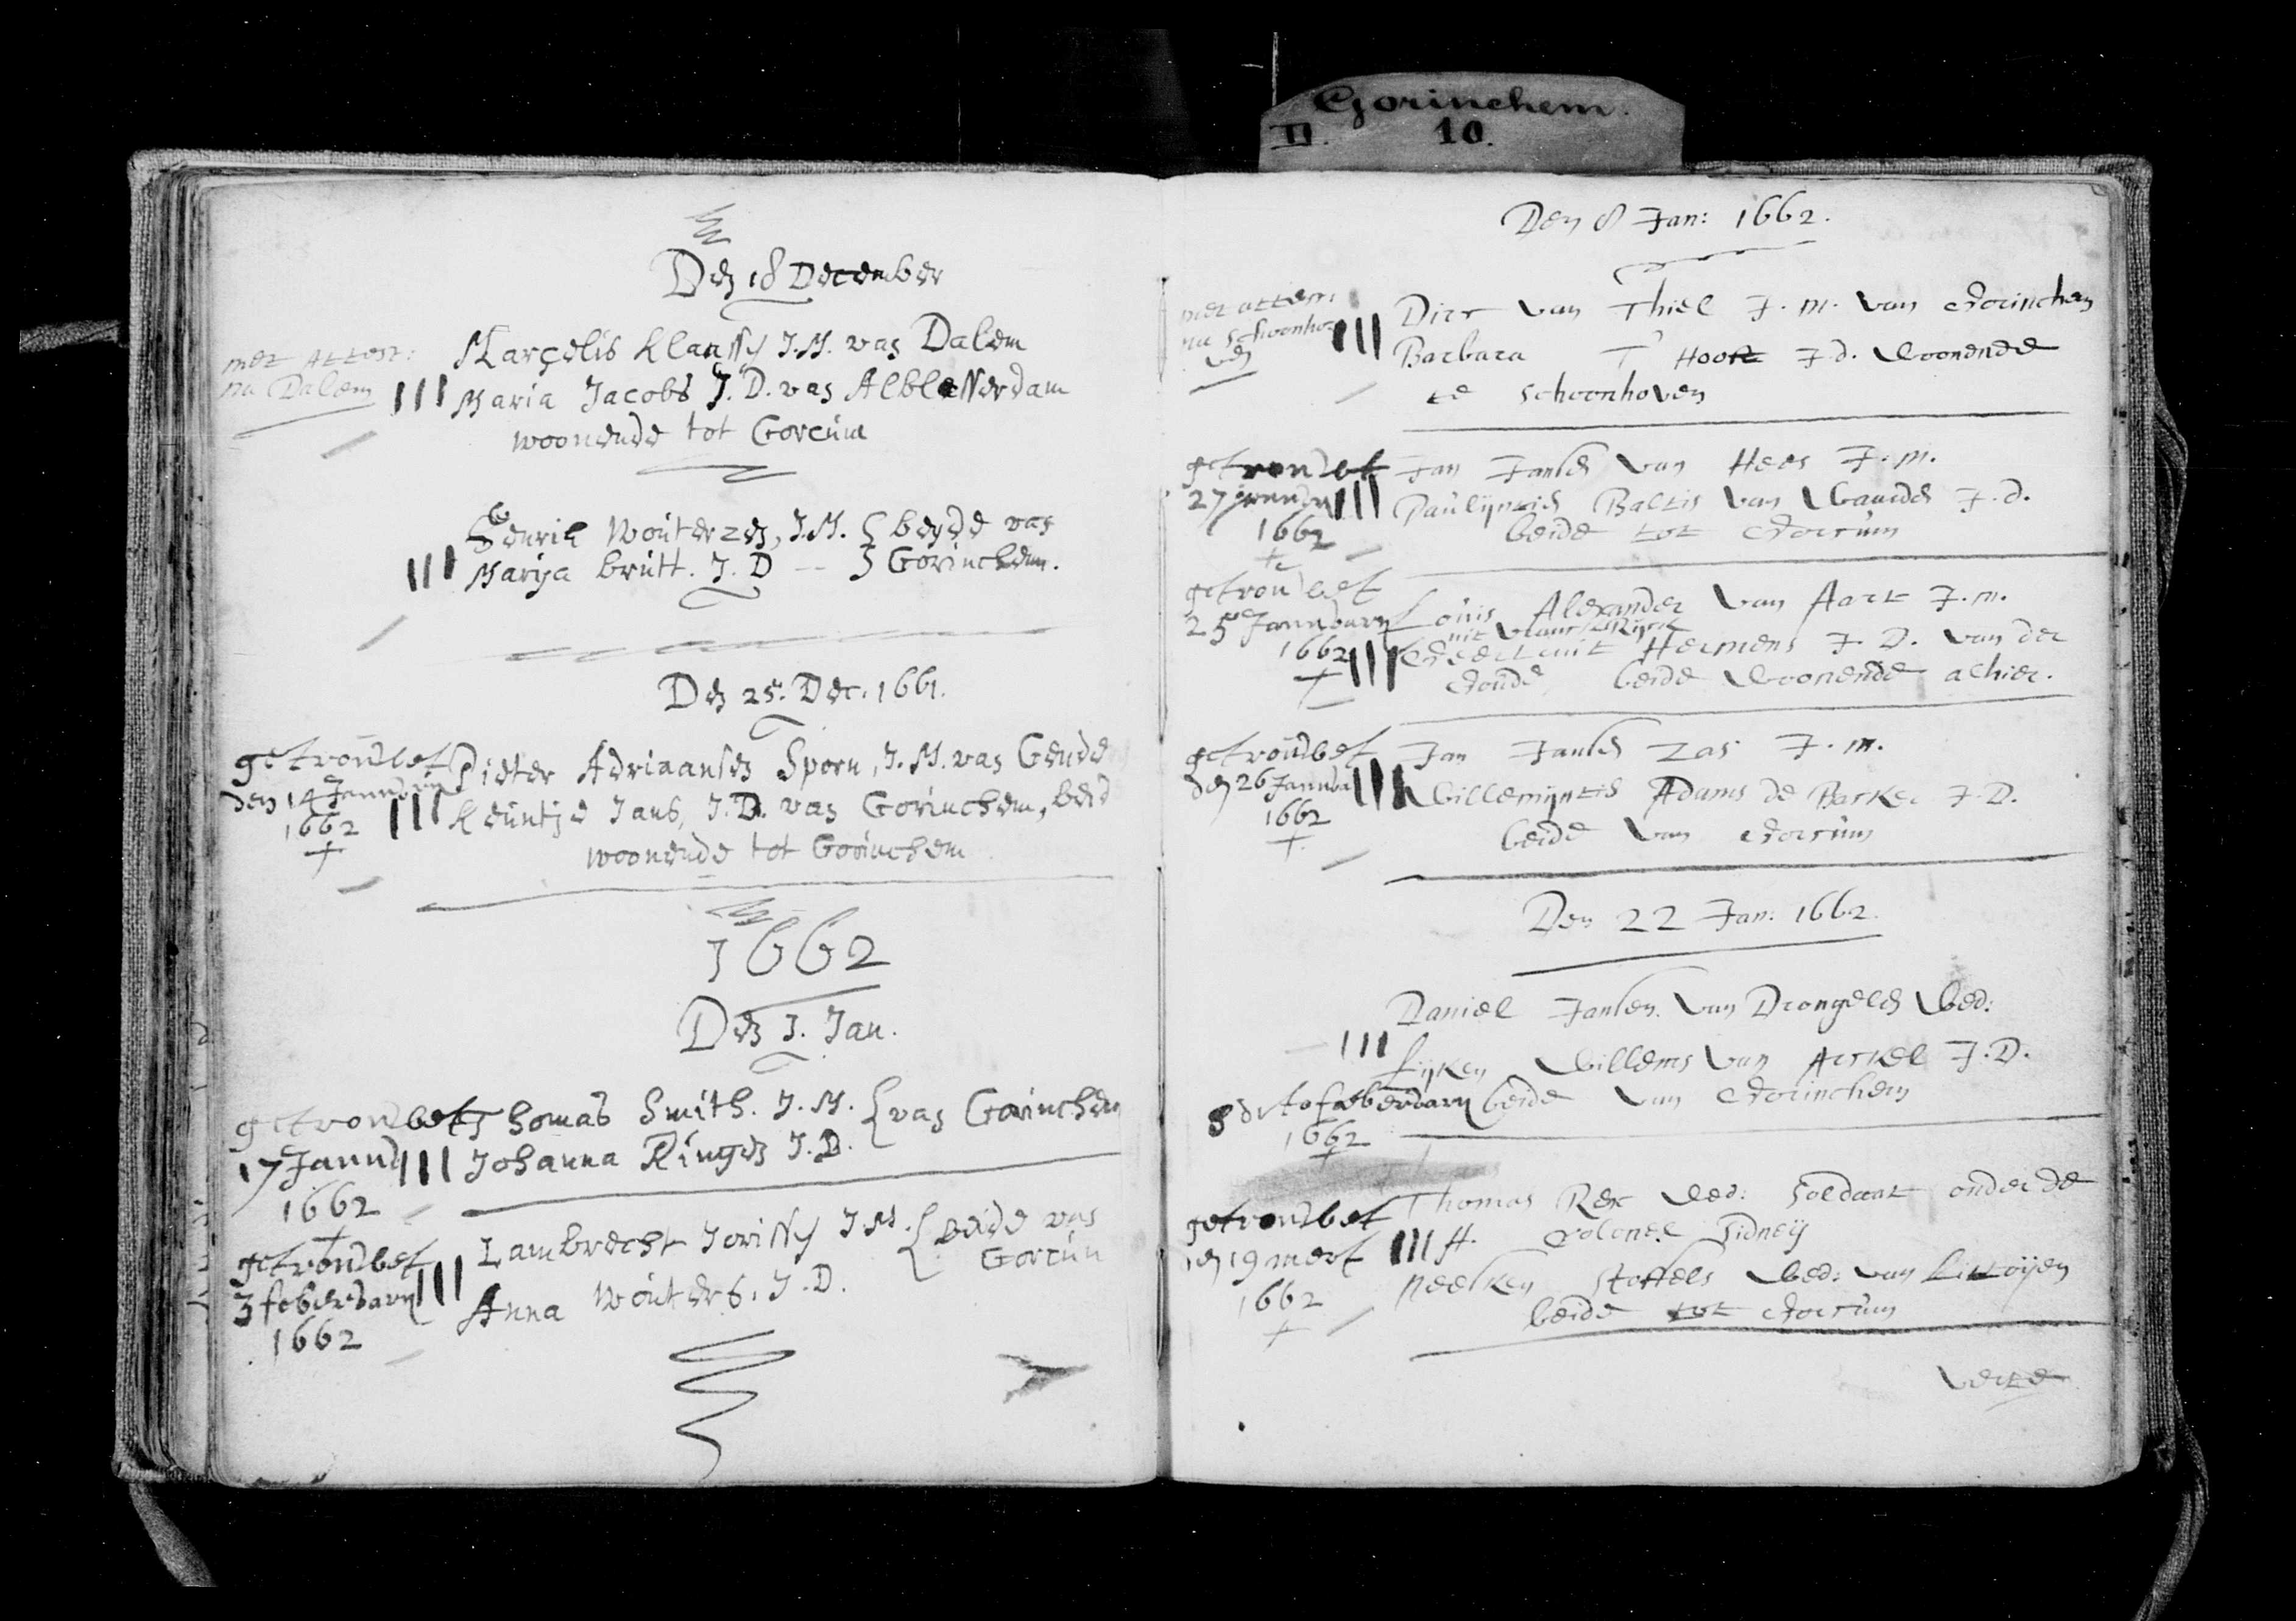 Gorinchem.
D. 10.
Den 18 December
met Attest:
na Dalem
III
Marcelis Klaassen J.M. van Dalem
Maria Jacobs J.D. van Alblasserdam
woonende tot Gorcum
III
Henrik Wouterzen, J.M. { beyde van
Marija britt. J.D — } Gorinchem.
Den 25. Dec. 1661.
getroudet
den 14 Januwarij
1662
III
Pieter Adriaansen Sporn, J.M. van Gende
Leuntje Jans, J.D. van Gorinchem, beid
woonende tot Gorinchem
1662
Den 1. Jan.
getroudet
17 Januw
1662
III
Thomas Smith. J.M. { van Gorinchem
Johanna Ringen J.D.
getroudet
3 feberwarij
1662
III
Lambrecht Jorissen J.M. { Beide van
Anna Wouters, J.D. Gorcum
Den 8 Jan: 1662.
met attem:
na Schoonho
ven
III
Dirr van Thiel J.m. van Gorinchem
Barbara T' Hooft J.d. Woonende
te Schoonhoven
getroudet
27 januw
1662
III
Jan Jansen van Hees J.m.
Paulijntien Baltis van J.d.
beide tot Gorcum
getroudet
25 Januwarij
1662
III
Louis Alexander van Aart J.m.
uit Vranckrijck
Geertruit Hermens J.D. van der
Goude beide Woonende alhier.
getroudet
den 26 Januwa
1662
III
Jan Jansen Zas J.m.
Willemijntie Adams de Backer J.D.
beide van Gorcum
Den 22 Jan: 1662.
III
Daniel Jansen van Drongelen Wed:
Lijken Willems van Arckel J.D.
beide van Gorinchem
8 feberwarij
1662
getroudet
den 19 mert
1662
III
Thomas Rex Wed: Soldaat onder de
H. Colonel Sidneij
Neelken Stoffels Wed: van
beide tot Gorcum
Verte